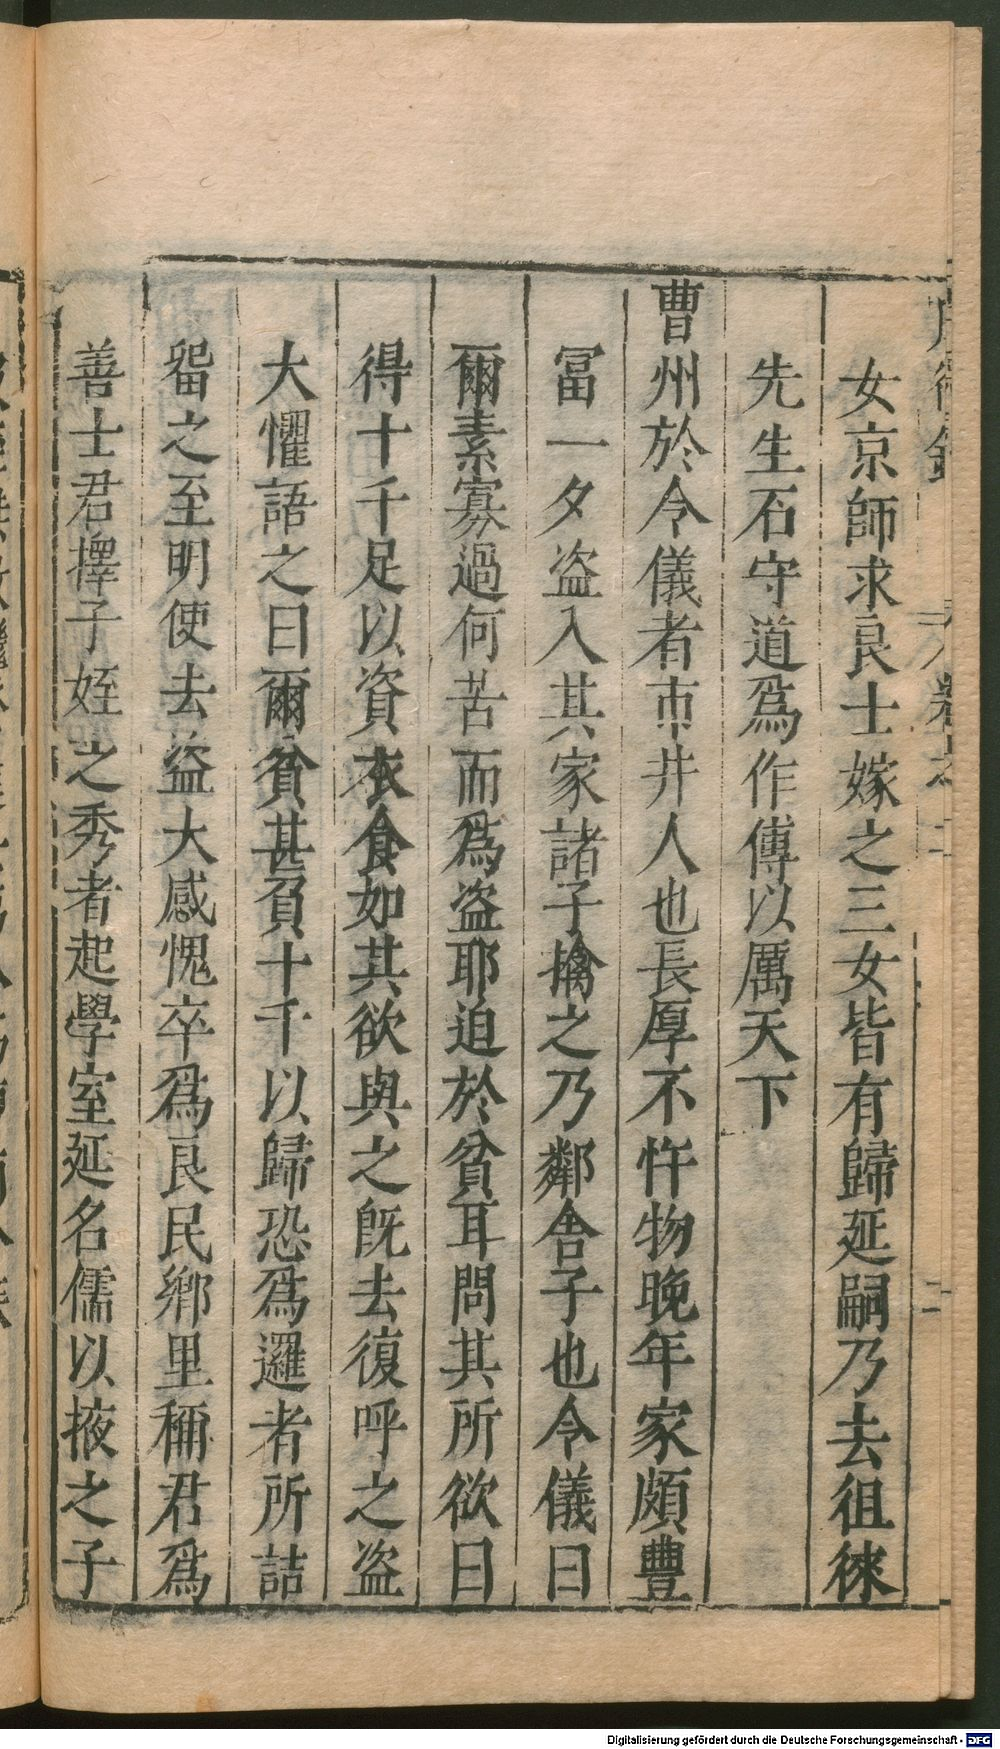 女京師求良士嫁之三女皆有歸延嗣乃去徂徠
先生石守道爲作傳以厲天下
曹州於令儀者市井人也長厚不忤物晚年家頗豐
冨一夕盗入其家諸子擒之乃鄰舍子也令儀曰
爾素寡過何苦而爲盗耶迫於貧耳問其所欲曰
得十千足以資衣食如其欲與之旣去復呼之盗
大懼語之曰爾貧甚負十千以歸恐爲邏者所詰
畱之至明使去盗大感愧卒爲良民鄉里稱君爲
善士君擇子姪之秀者起學室延名儒以掖之子
Digitalisierung gefördert durch die Deutsche Forschungsgemeinschaft - DFG